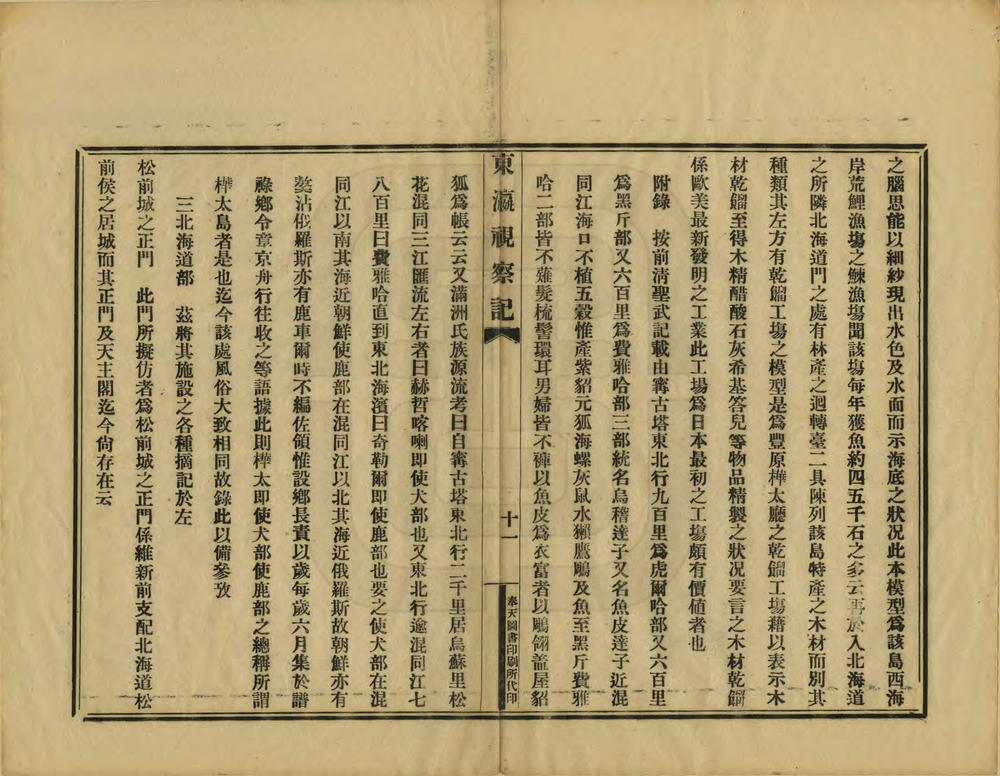 之腦思能以細紗現出水色及水面而示海底之狀况此本模型爲該島西海
岸荒鯉漁塲之鰊漁塲聞該塲每年獲魚約四五千石之多云再於入北海道
之所隣北海道門之處有林產之迴轉臺二具陳列該島特產之木材而別其
種類其左方有乾餾工塲之模型是爲豐原樺太廳之乾餾工塲藉以表示木
材乾餾至得木精醋酸石灰希基答兒等物品精製之狀况要言之木材乾餾
係歐美最新發明之工業此工塲爲日本最初之工塲頗有價値者也
附錄 按前淸聖武記載由寗古塔東北行九百里爲虎爾哈部又六百里
爲黑斤部又六百里爲費雅哈部三部統名烏稽達子又名魚皮達子近混
同江海口不植五穀惟產紫貂元狐海螺灰鼠水獺鷹鵰及魚至黑斤費雅
哈二部皆不薙髮梳髻環耳男婦皆不褲以魚皮爲衣富者以鵰翎蓋屋貂
東瀛視察記
十一
奉天圖書印刷所代印
狐爲帳云云又滿洲氏族源流考曰自寗古塔東北行二千里居烏蘇里松
花混同三江匯流左右者曰赫哲喀喇即使犬部也又東北行逾混同江七
八百里曰費雅哈直到東北海濱曰奇勒爾即使鹿部也要之使犬部在混
同江以南其海近朝鮮使鹿部在混同江以北其海近俄羅斯故朝鮮亦有
獒沾俄羅斯亦有鹿車爾時不編佐領惟設鄉長責以歲每歲六月集於譜
祿鄉令章京舟行往收之等語據此則樺太即使犬部使鹿部之總稱所謂
樺太島者是也迄今該處風俗大致相同故錄此以備參攷
三北海道部 茲將其施設之各種摘記於左
松前城之正門 此門所擬仿者爲松前城之正門係維新前支配北海道松
前侯之居城而其正門及天主閣迄今尙存在云